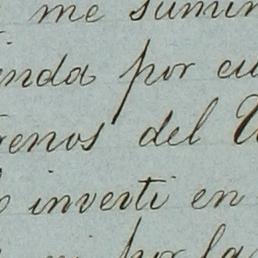 me sumin
inda por cu
renos del
inverti en
por la